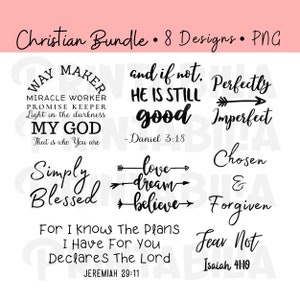 Christian Bundle • 8 Designs • PNG
WAY MAKER
MIRACLE WORKER
PROMISE KEEPER
Light in the darkness
MY GOD
That is who You are
and if not,
HE IS STILL
good
- Daniel 3:18
Perfectly
Imperfect
Simply
Blessed
love
dream
believe
Chosen
&
Forgiven
For I Know The Plans
I Have For You
Declares The Lord
JEREMIAH 29:11
Fear Not
Isaiah 41:10